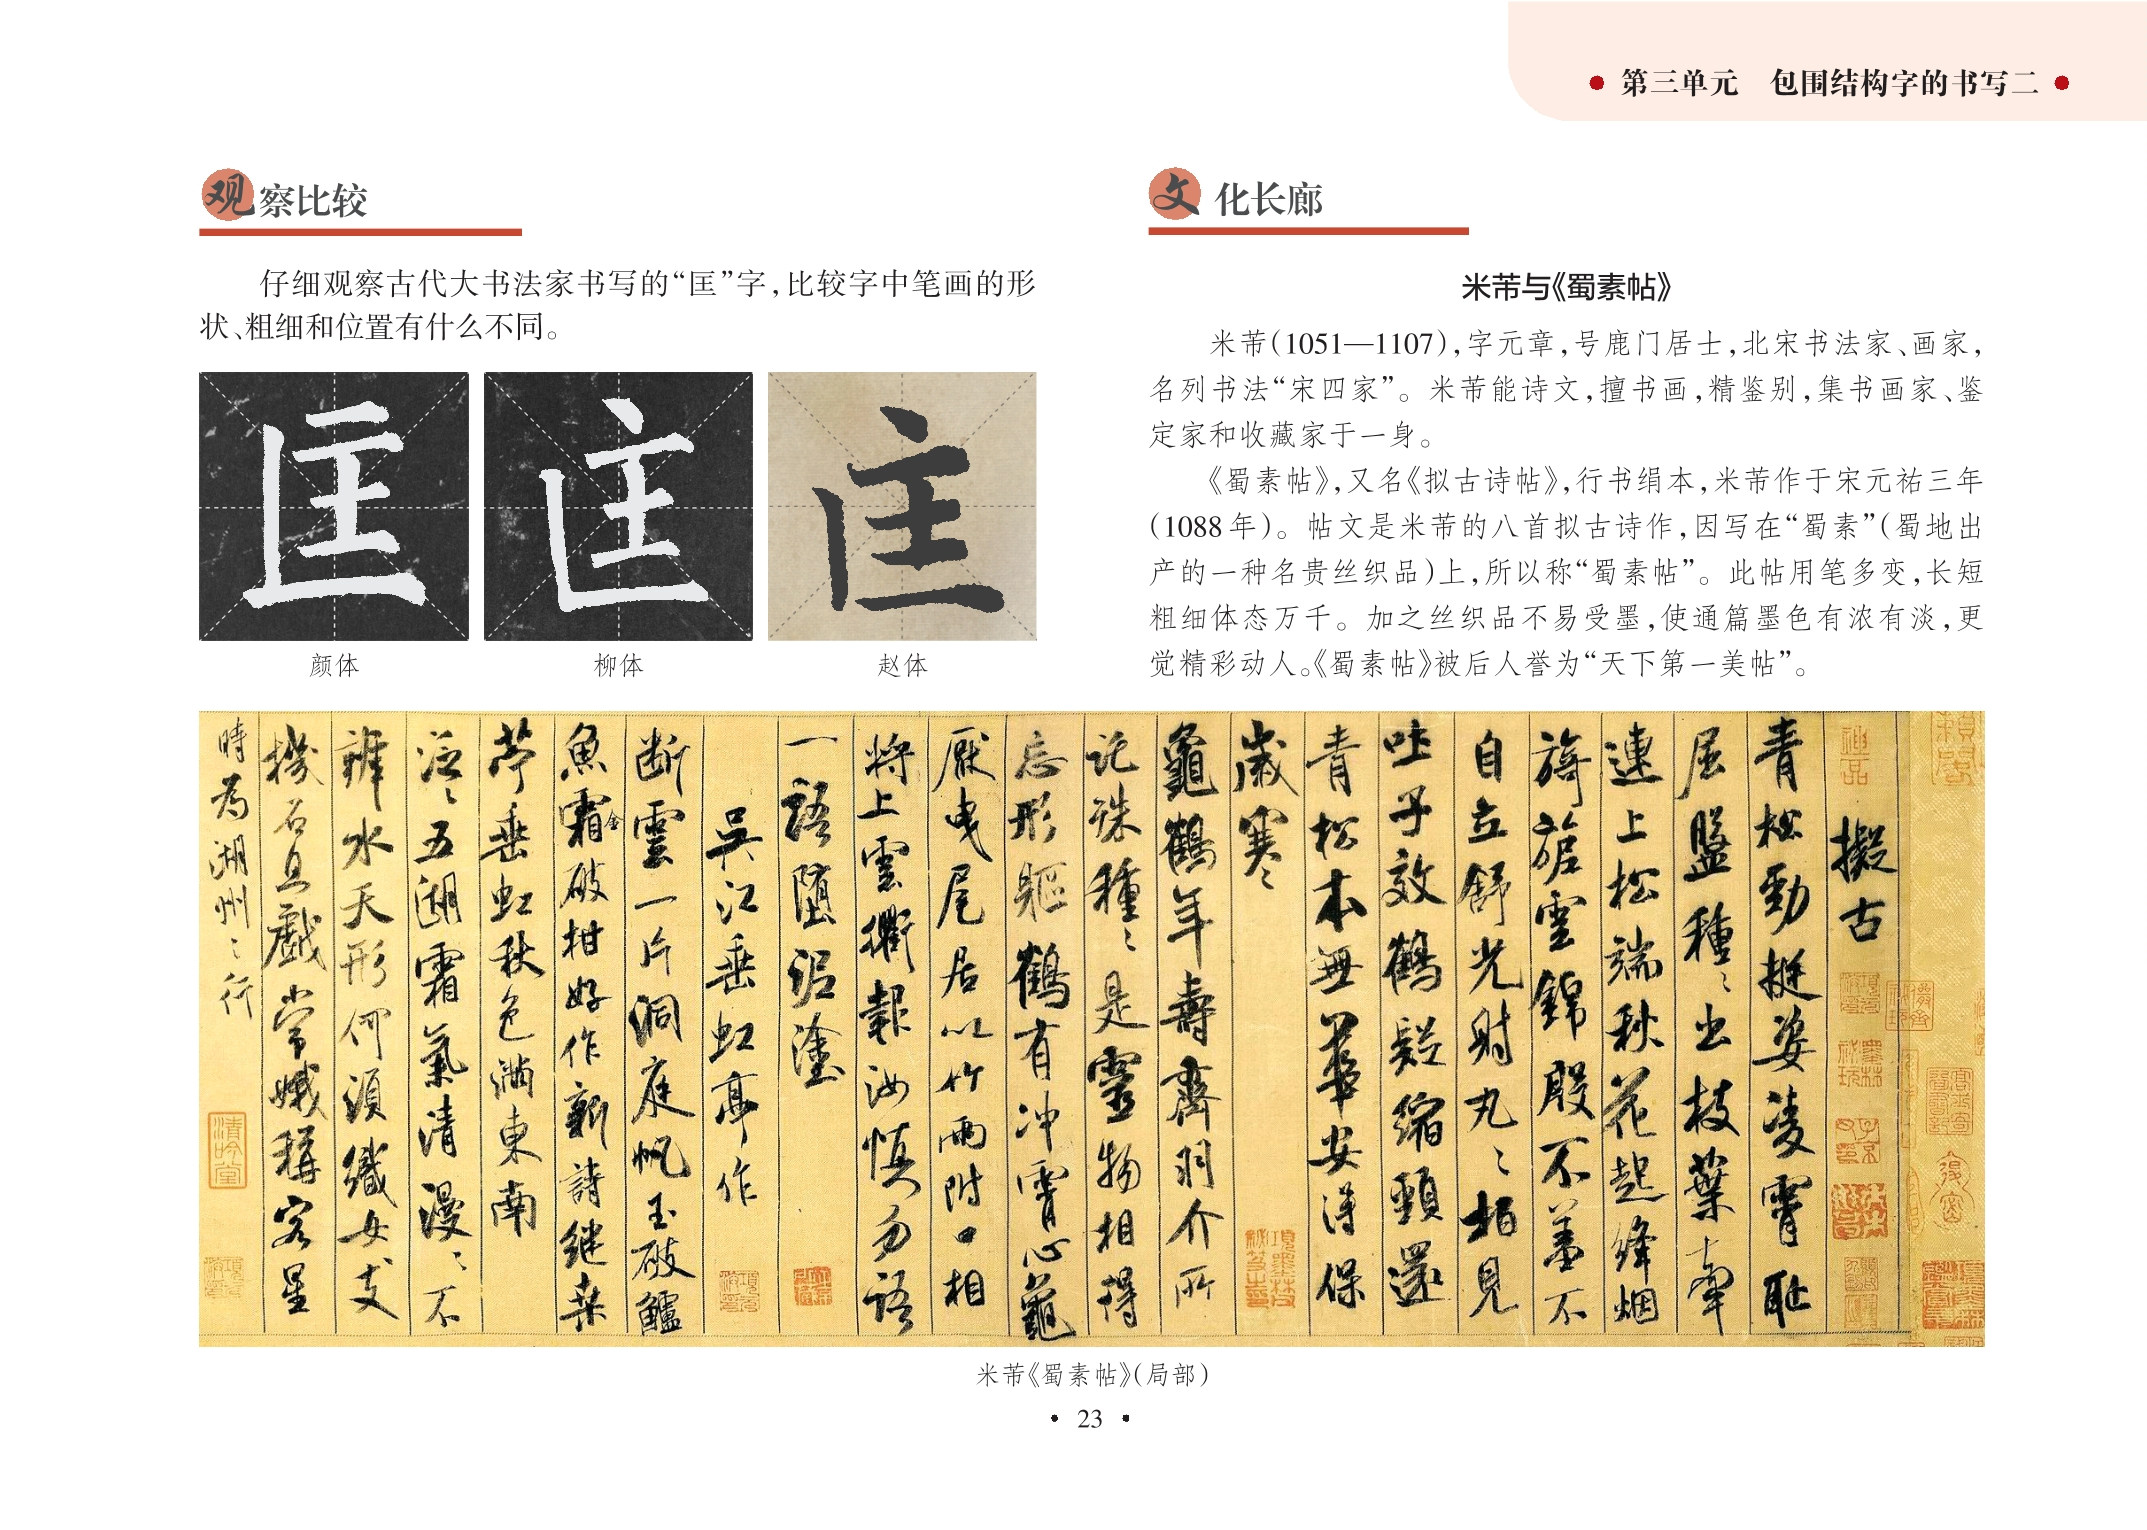 第三单元 包围结构字的书写二
观察比较
仔细观察古代大书法家书写的“匡”字，比较字中笔画的形
状、粗细和位置有什么不同。
匡
匡
匡
颜体
柳体
赵体
文化长廊
米芾与《蜀素帖》
米芾（1051—1107），字元章，号鹿门居士，北宋书法家、画家，
名列书法“宋四家”。米芾能诗文，擅书画，精鉴别，集书画家、鉴
定家和收藏家于一身。
《蜀素帖》，又名《拟古诗帖》，行书绢本，米芾作于宋元祐三年
（1088年）。帖文是米芾的八首拟古诗作，因写在“蜀素”（蜀地出
产的一种名贵丝织品）上，所以称“蜀素帖”。此帖用笔多变，长短
粗细体态万千。加之丝织品不易受墨，使通篇墨色有浓有淡，更
觉精彩动人。《蜀素帖》被后人誉为“天下第一美帖”。
擬古
青松勁挺姿凌霄耻
屈盤種〻出枝葉牽
連上松端秋花起絳烟
旖旎雲錦殷不羞不
自立舒光射丸〻柏見
吐子效鶴疑縮頸還
青松本無華安得保
歲寒〻
龜鶴年壽齊羽介所
託殊種〻是靈物相得
忘形軀鶴有冲霄心龜
厭曳尾居以竹兩附口相
將上雲衢報汝慎勿語
一語墮泥塗
吳江垂虹亭作
断雲一片洞庭帆玉破鱸
魚霜金破柑好作新詩継桑
苧垂虹秋色滿東南
泛〻五湖霜氣清漫〻不
辨水天形何須織女支
機石且戲常娥稱客星
時為湖州〻行
清吟堂
米芾《蜀素帖》（局部）
• 23 •